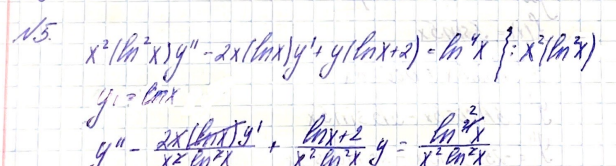 №5.
x²(ln²x)y'' - 2x(lnx)y' + y(lnx+2) = ln⁴x } : x²(ln²x)
y₁ = lnx
y'' - \frac{2x(lnx)y'}{x² ln²x} + \frac{lnx+2}{x² ln²x} y = \frac{ln²x}{x² ln²x}